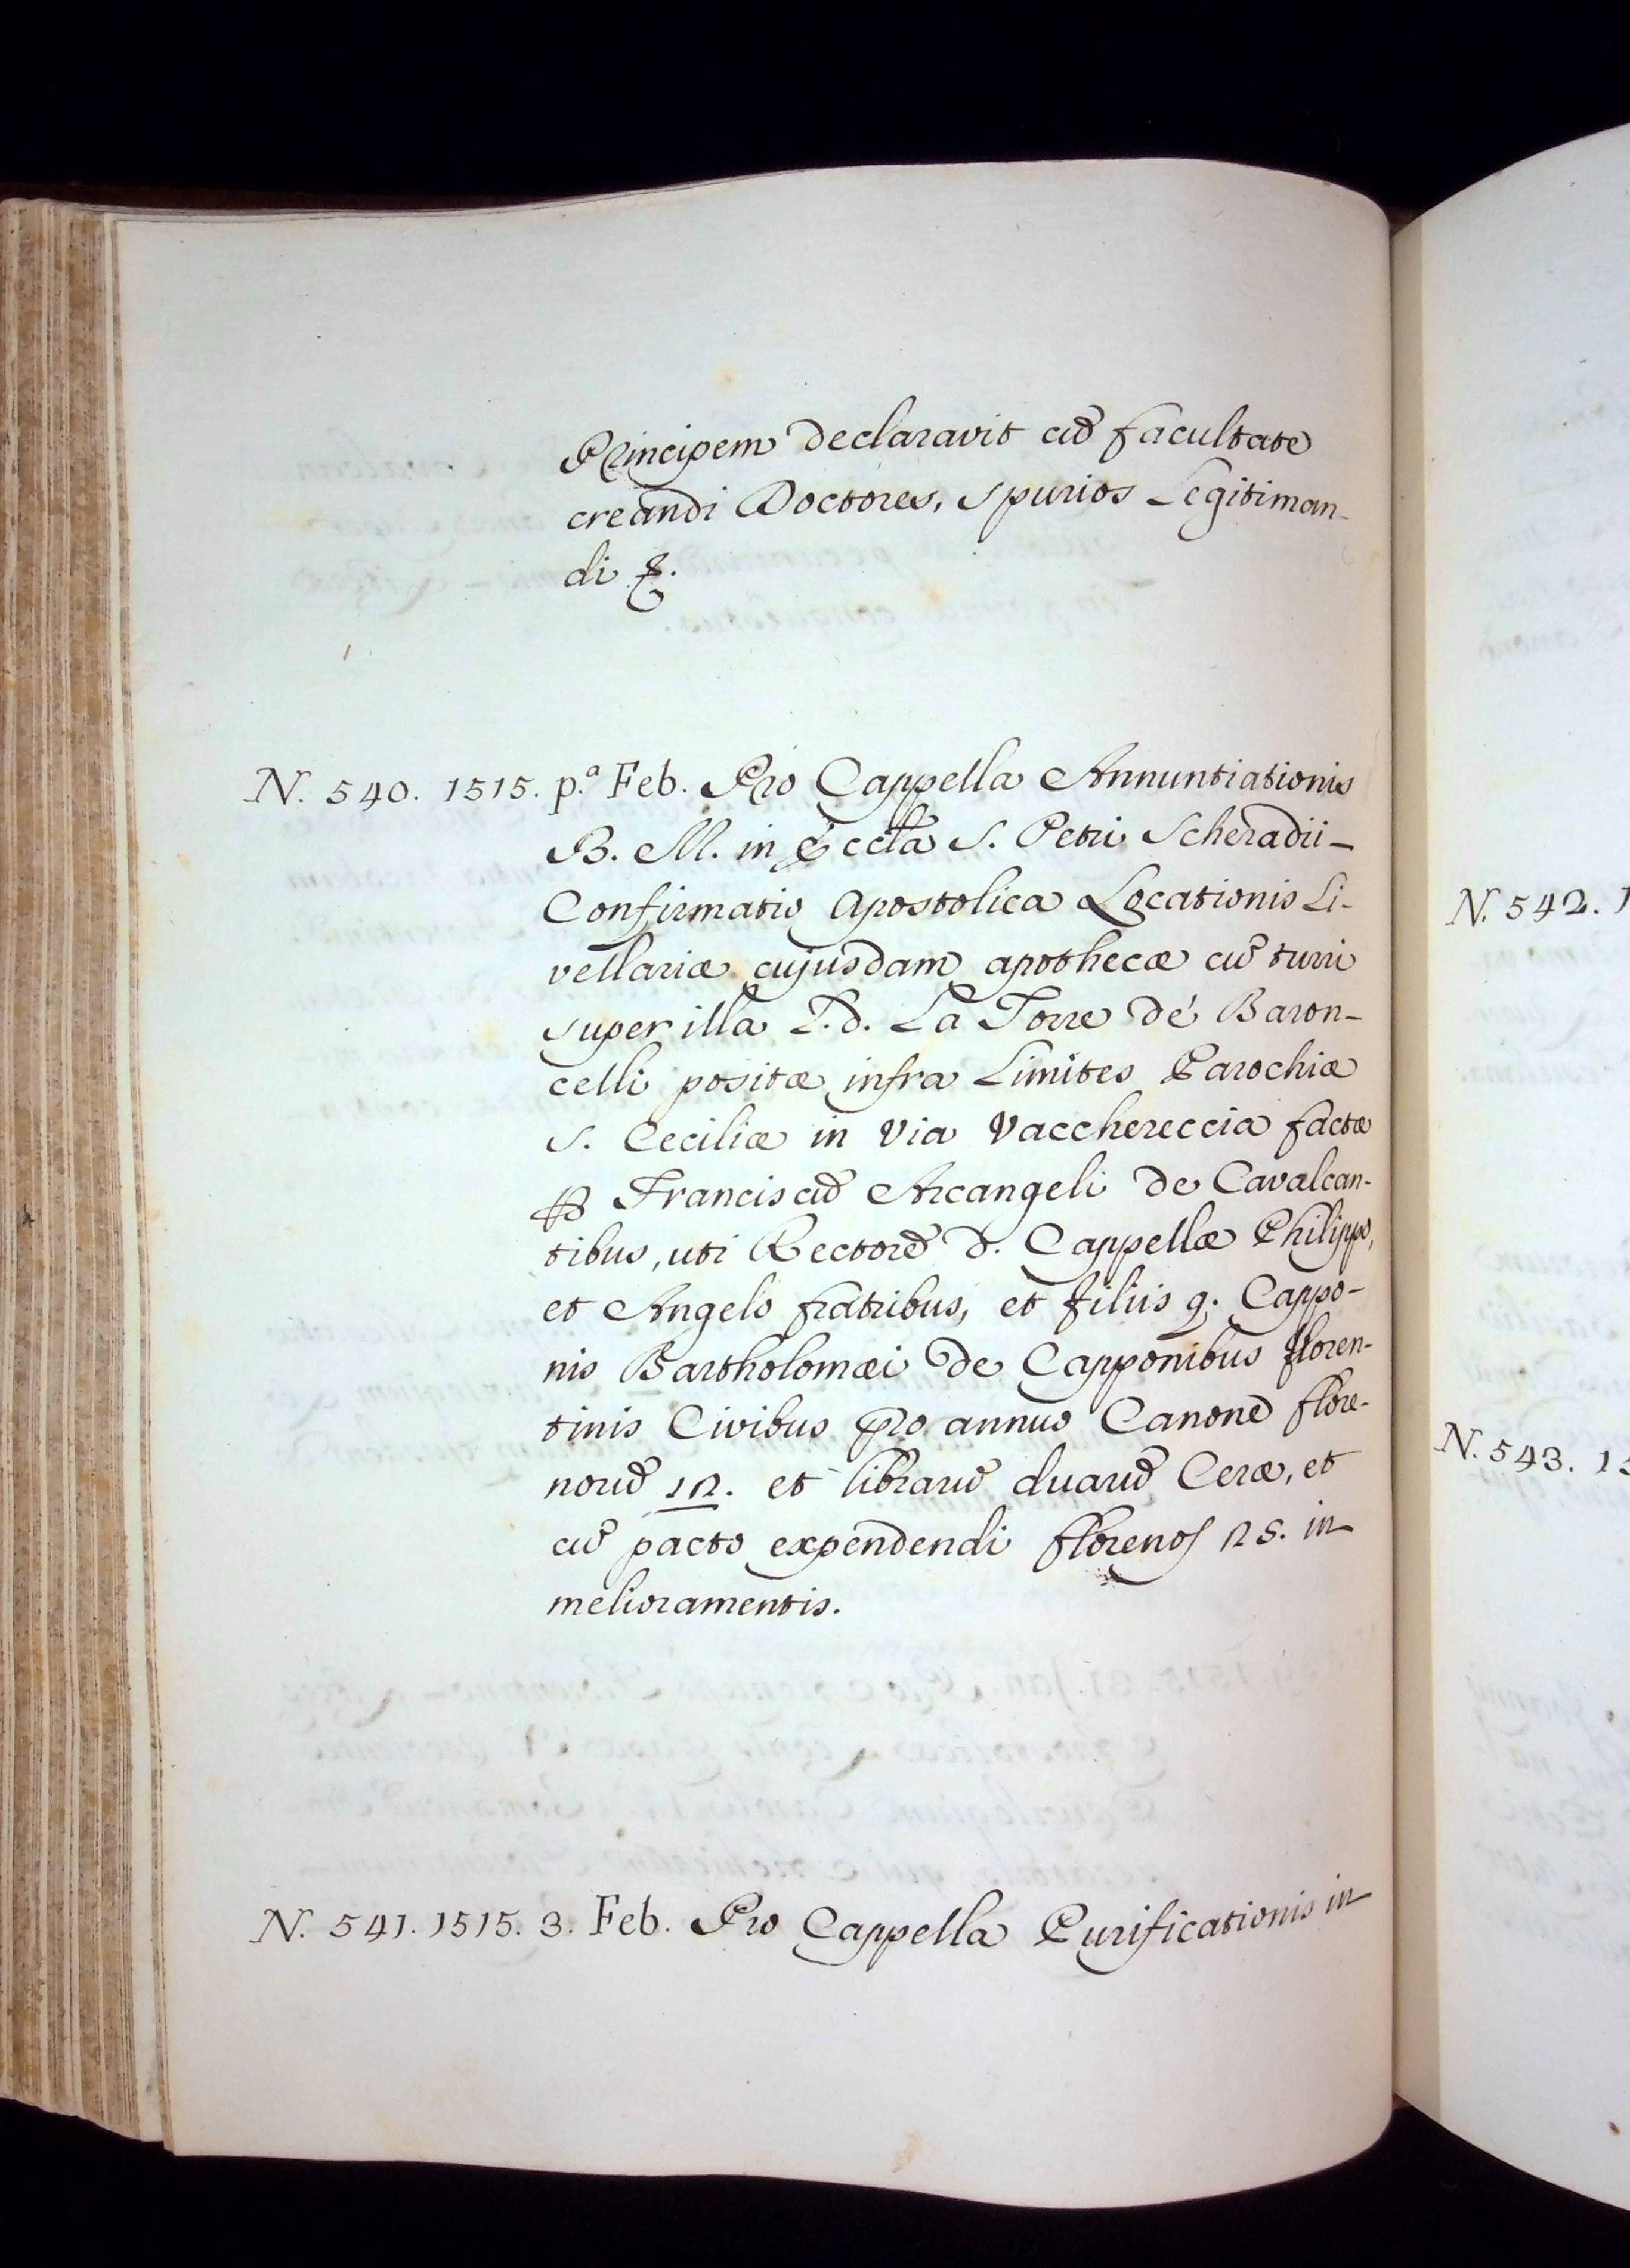 Principem declaravit cũ facultate
creandi Doctores, spurios Legitiman-
di &.
N. 540. 1515. p.ª Feb. Pro Cappella Annuntiationis
B. M. in Eccl̃a S. Petri Scheradii-
Confirmatio Apostolica Locationis Li-
vellariæ cujusdam apothecæ cũ turri
super illa L.d. La Torre dé Baron-
celli positæ infra Limites Parochiæ
S. Ceciliæ in Via Vacchereccia factæ
ꝑ Franciscũ Arcangeli de Cavalcan-
tibus, uti Rectorẽ d. Cappellæ Philippo,
et Angelo fratribus, et filiis q. Cappo-
nis Bartholomæi de Capponibus floren-
tinis Civibus pro annuo Canone flore-
norũ 12. et librarũ duarũ Ceræ, et
cũ pacto expendendi florenos 25. in
melioramentis.
N. 541. 1515. 3. Feb. Pro Cappella Purificationis in
N. 542. 1
N. 543. 15